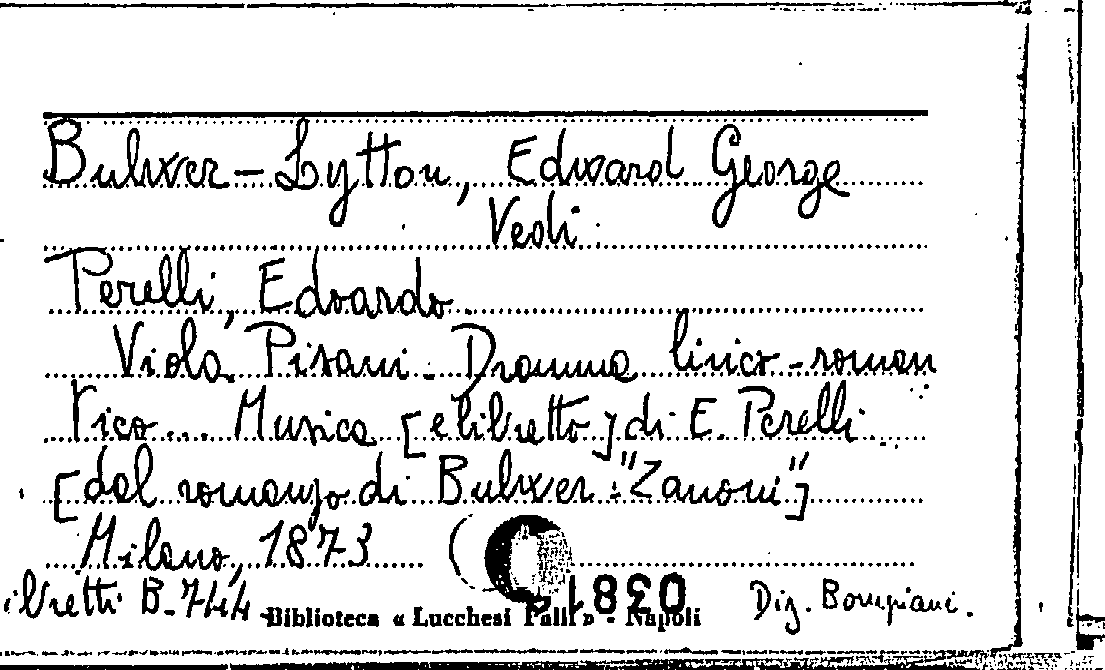 Bulwer-Lytton, Edward George
Vedi:
Perelli, Edoardo.
Viola Pisani. Dramma lirico-roman
tico... Musica [e libretto] di E. Perelli...
[dal romanzo di Bulwer: "Zanoni"]
Milano, 1873
ibretti B-744
Biblioteca « Lucchesi Palli » - Napoli
Diz. Bompiani.